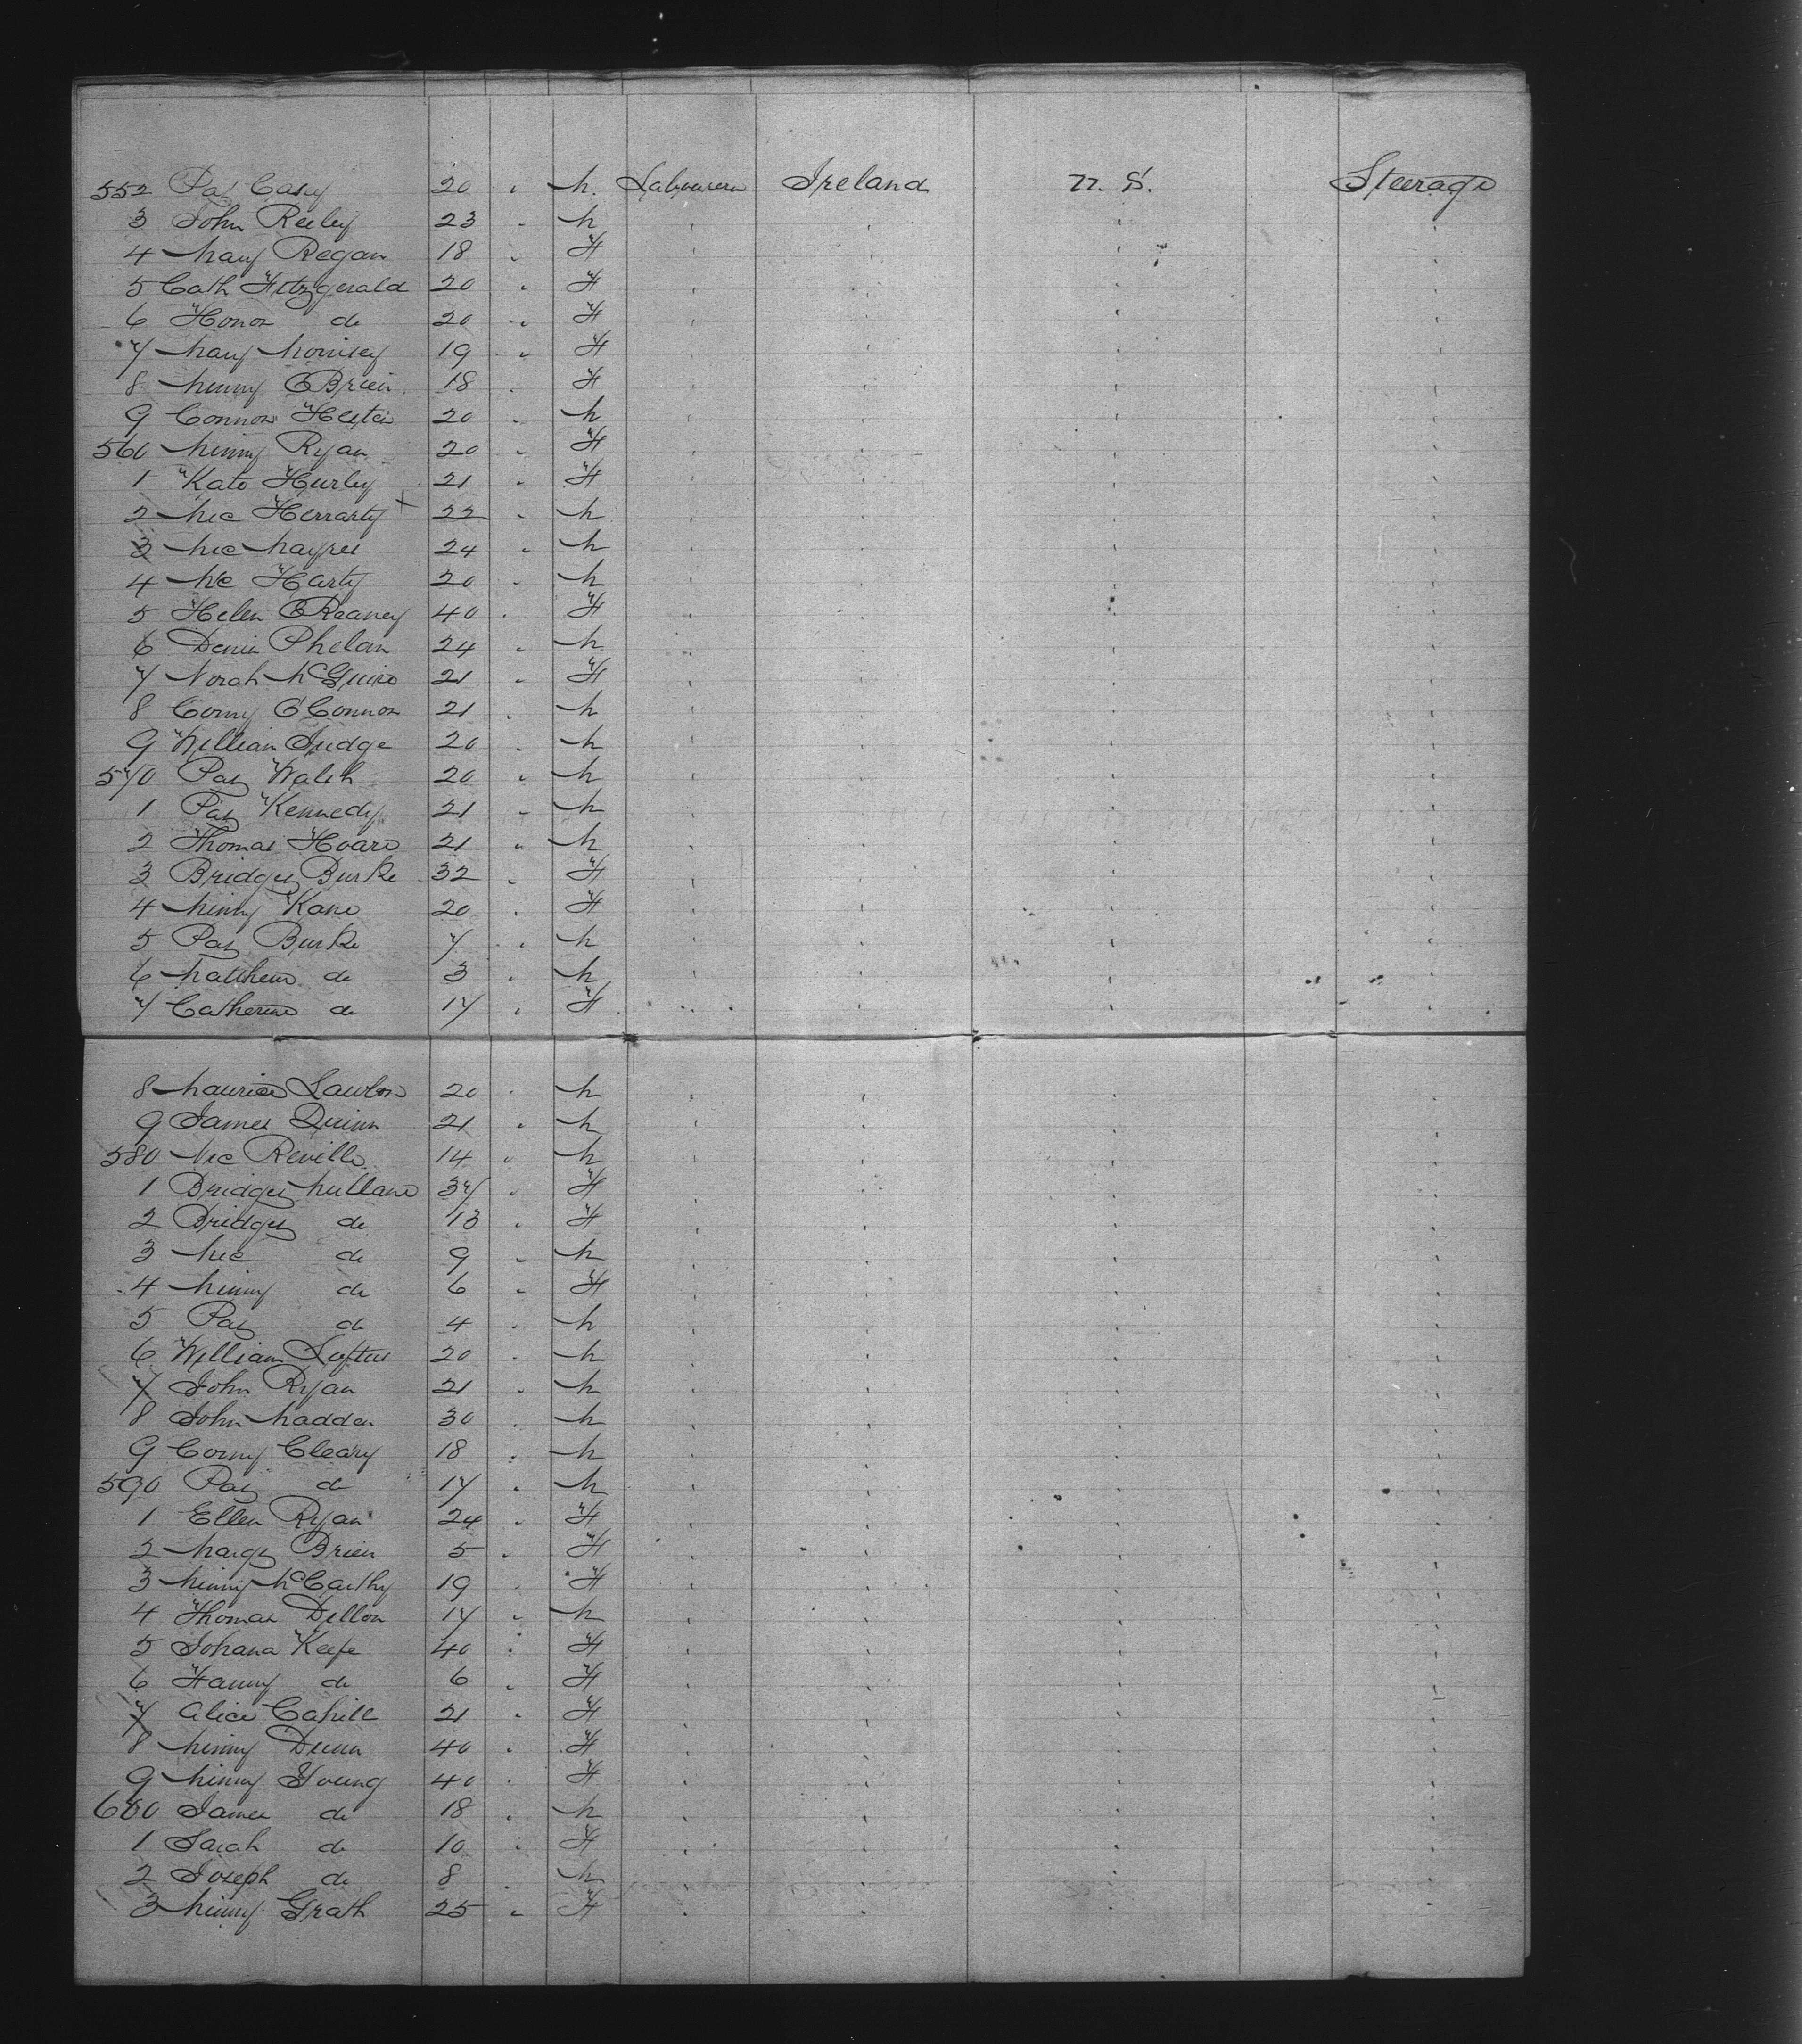 552 Pat Casey 20 " M. Labourers Ireland U. S. Steerage
3 John Reiley 23 " M " " " "
4 Mary Regan 18 " F " " " "
5 Cath Fitzgerald 20 " F " " " "
6 Honor do 20 " F " " " "
7 Mary Morrisey 19 " F " " " "
8 Minny OBrien 18 " F " " " "
9 Connor 20 " M " " " "
560 Minny Ryan 20 " F " " " "
1 Kate Hurley 21 " F " " " "
2 Mic + 22 " M " " " "
3 Mic 24 " M " " " "
4 Mc Harty 20 " M " " " "
5 Helen 40 " F " " " "
6 Denis Phelan 24 " M " " " "
7 Norah McGuire 21 " F " " " "
8 Corny O'Connor 21 " M " " " "
9 William Judge 20 " M " " " "
570 Pat Walsh 20 " M " " " "
1 Pat Kennedy 21 " M " " " "
2 Thomas Hoare 21 " M " " " "
3 Bridget Burke 32 " F " " " "
4 Minny Kane 20 " F " " " "
5 Pat Burke 7 " M " " " "
6 Matthew do 3 " M " " " "
7 Catherine do 17 " F " " " "
8 Maurice Lawlor 20 " M " " " "
9 James Quinn 21 " M " " " "
580 Mic Reville 14 " M " " " "
1 Bridget Mullane 37 " F " " " "
2 Bridget do 13 " F " " " "
3 Mic do 9 " M " " " "
4 Minny do 6 " F " " " "
5 Pat do 4 " M " " " "
6 William Loftus 20 " M " " " "
7 John Ryan 21 " M " " " "
8 John Madden 30 " M " " " "
9 Corny Cleary 18 " M " " " "
590 Pat do 17 " M " " " "
1 Ellen Ryan 24 " F " " " "
2 Margt Brien 5 " F " " " "
3 Minny McCarthy 19 " F " " " "
4 Thomas Dillon 17 " M " " " "
5 Johana Keefe 40 " F " " " "
6 Fanny do 6 " F " " " "
7 Alice Cahill 21 " F " " " "
8 Minny Dunn 40 " F " " " "
9 Minny Young 40 " F " " " "
600 James do 18 " M " " " "
1 Sarah do 10 " F " " " "
2 Joseph do 8 " M " " " "
3 Minny Grath 25 " F " " " "